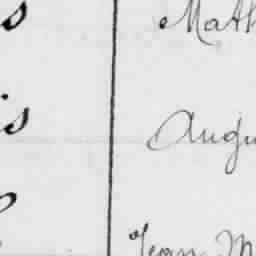 s Math
is Augu
Jean M